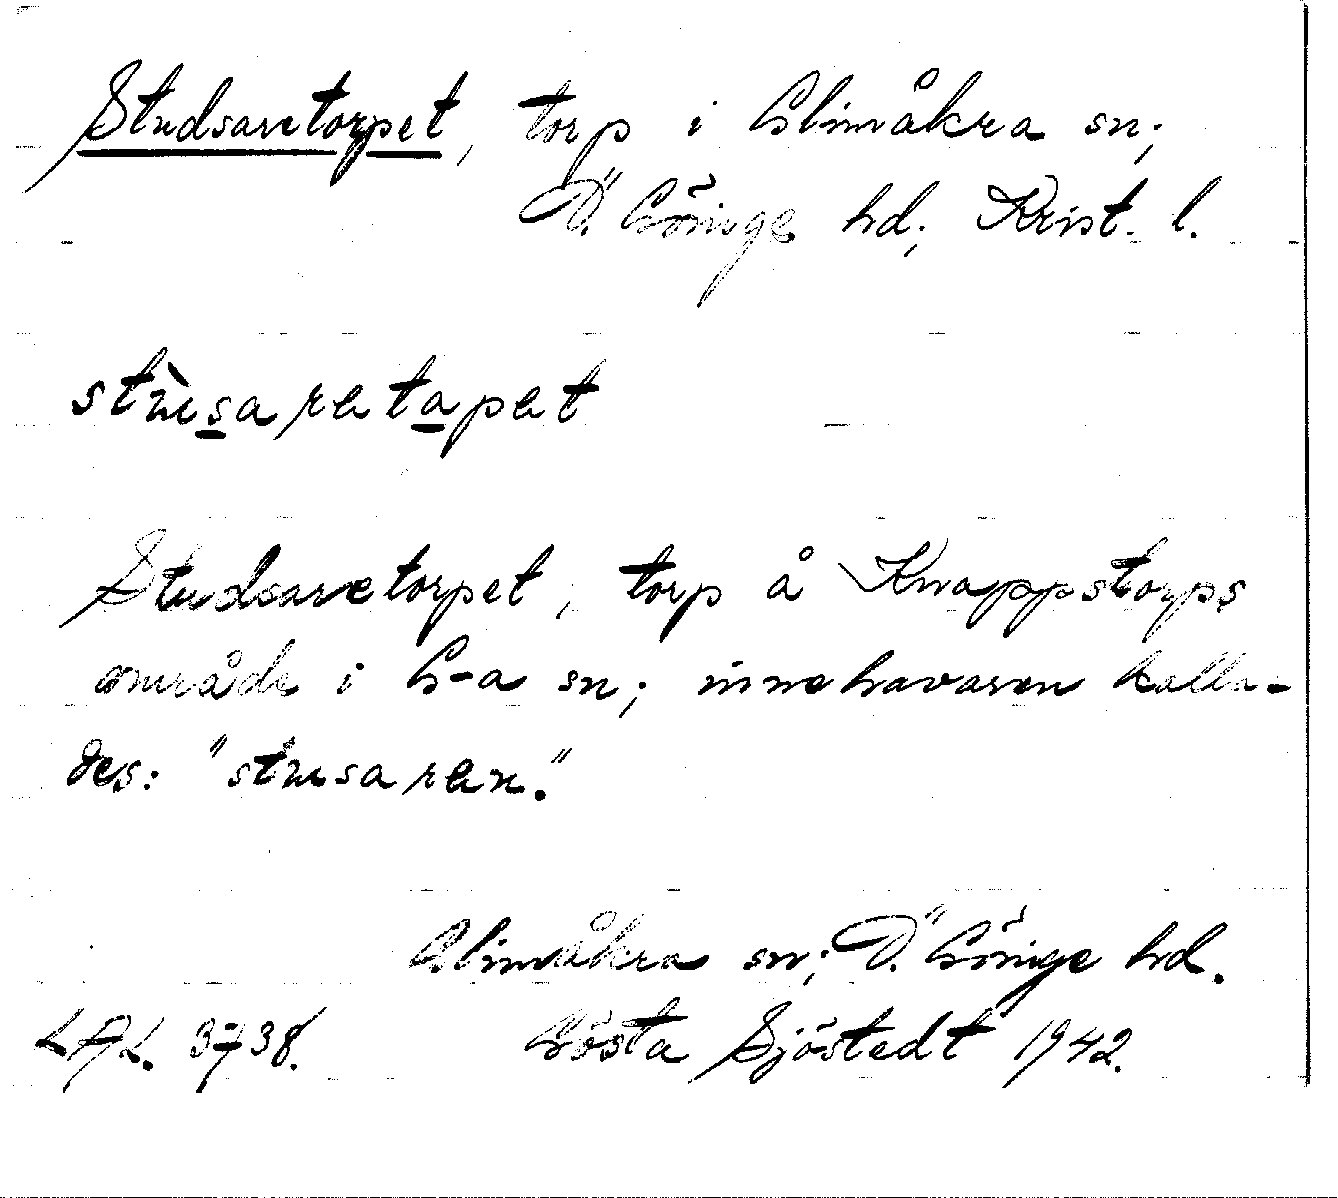 Studsaretorpet, torp i Glimåkra sn;
Ö. Göinge hd; Krist. l.
stùsaretapet
Studsaretorpet, torp å Knappstorps
område i G-a sn; innehavaren kalla-
des: "stusaren."
Glimåkra sn; Ö. Göinge hd.
LAL. 3738. Gösta Sjöstedt 1942.